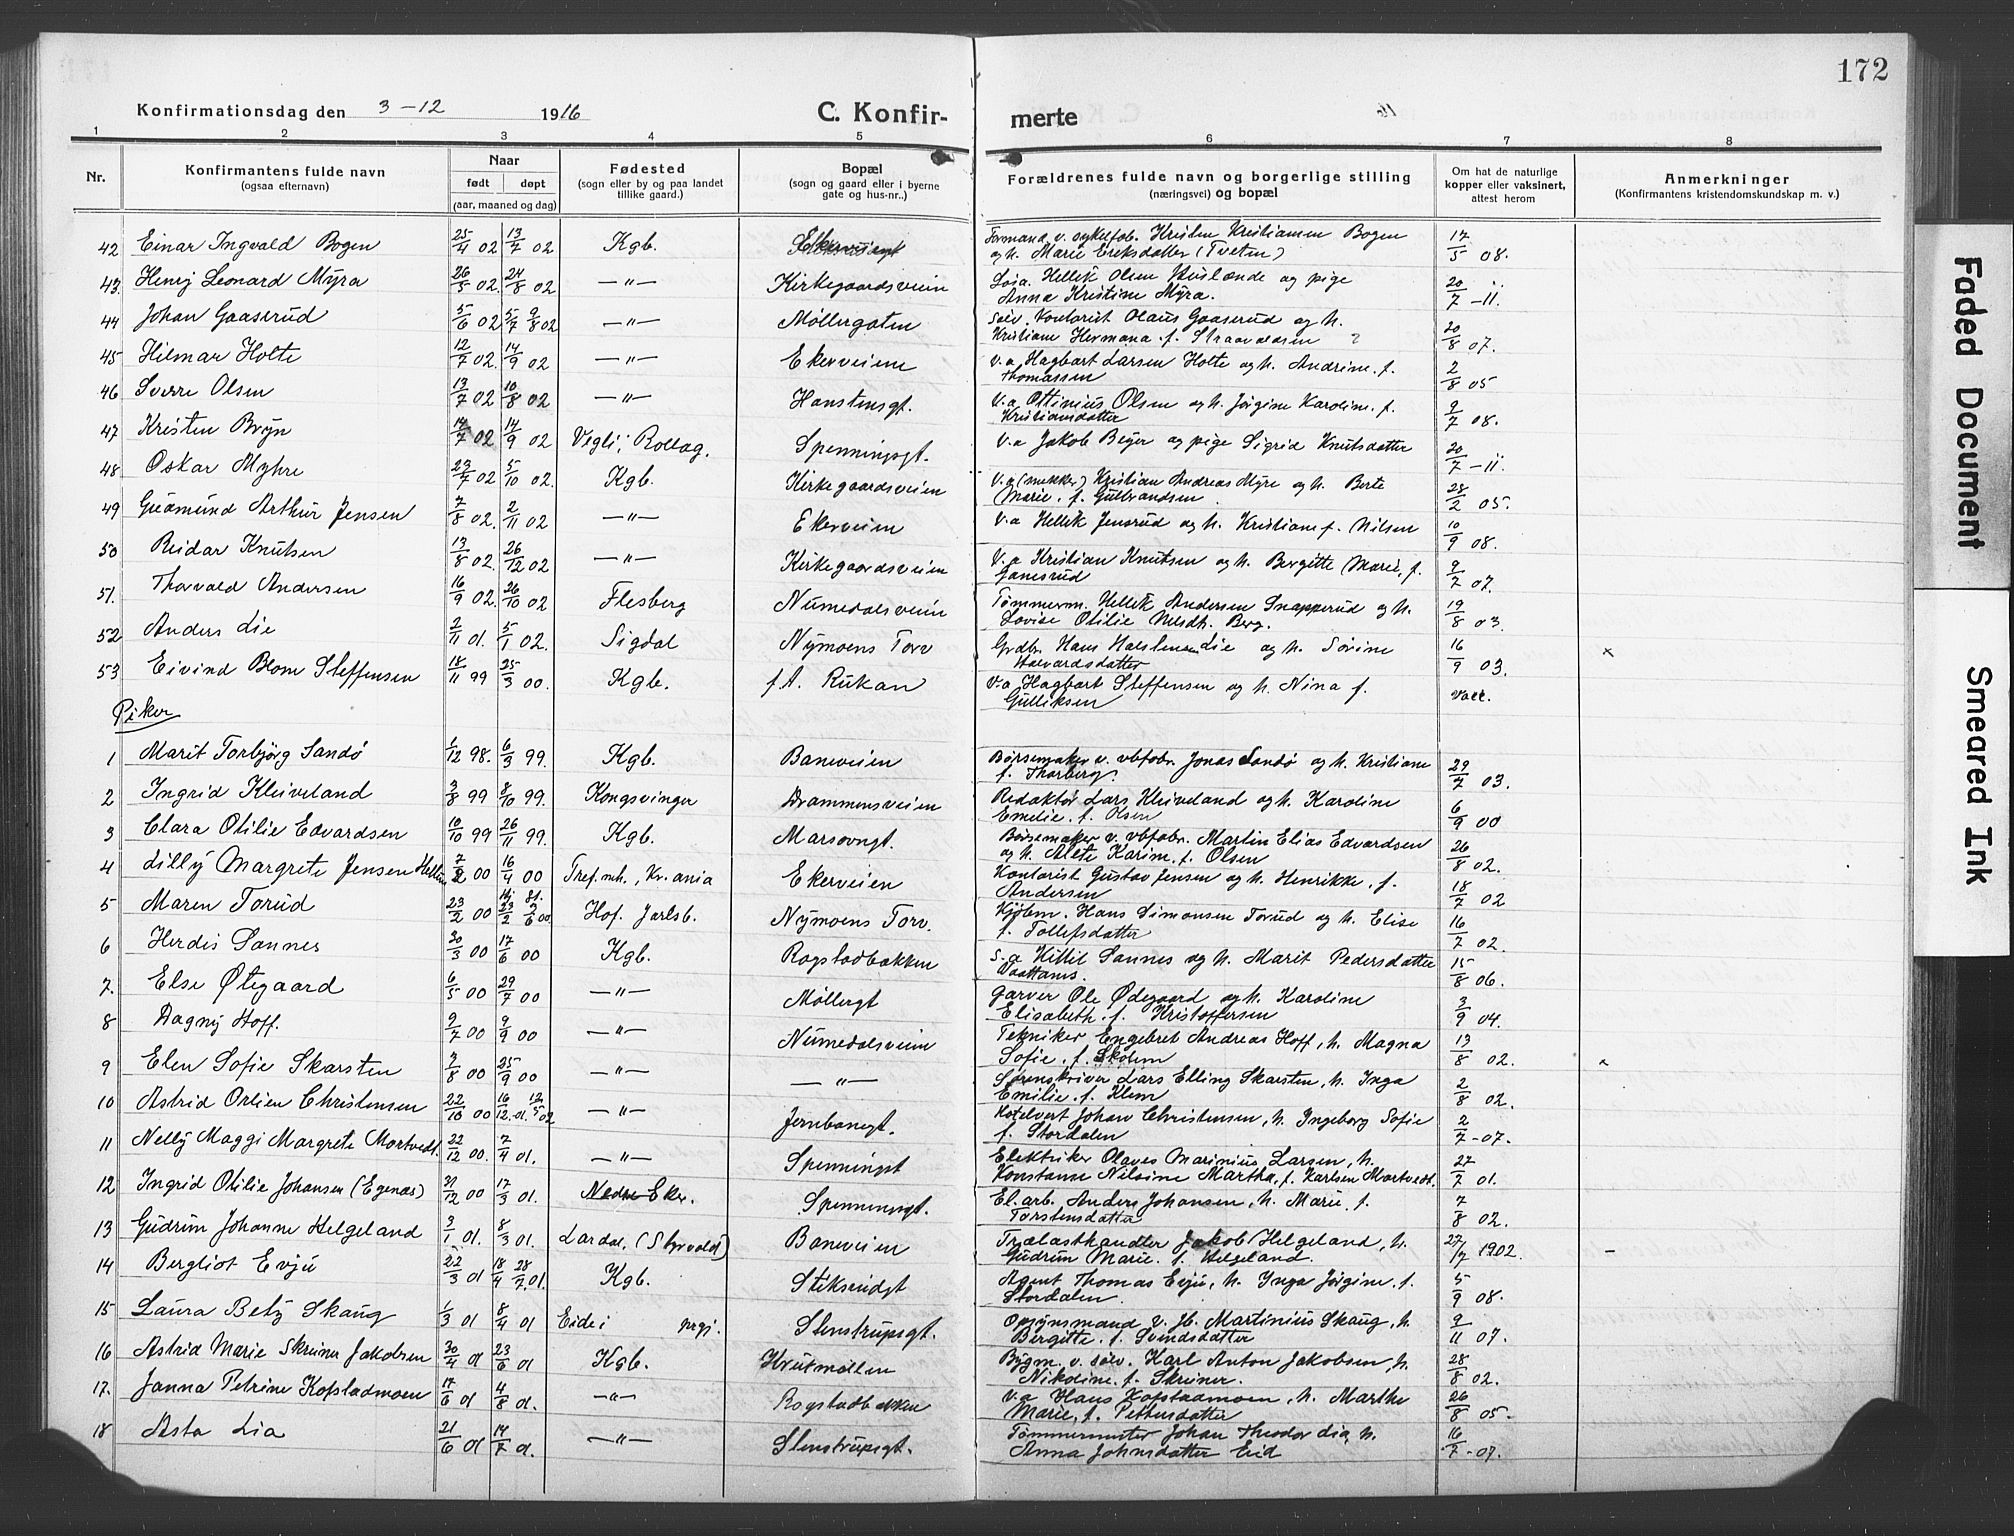 172
Konfirmationsdag den 3-12 1916 C. Konfir- merte
1 2 3 4 5 6 7 8
Nr. Konfirmantens fulde navn (ogsaa efternavn) Naar født døpt (aar, maaned og dag) Fødested (sogn eller by og paa landet tillike gaard.) Bopæl (sogn og gaard eller i byerne gate og hus-nr..) Forældrenes fulde navn og borgerlige stilling (næringsvei) og bopæl Om hat de naturlige kopper eller vaksinert, attest herom Anmerkninger (Konfirmantens kristendomskundskap m. v.)
42 Einar Ingvald Bogen 25/4 02 13/7 02 Kgb. Ekerveien Formand v. cykelfab. Kristen Kristiansen Bogen og h. Marie Eriksdatter (Tveten) 17/5 08.
43. Henry Leonard Myra 26/5 02. 24/8 02 —"— Kirkegaardsveien Løsa. Hellik Olsen og pige Anna Kristine Myra. 20/7 -11.
44 Johan Gaaserud 5/6 02 5/7 9/8 02 —"— Møllergaten Sølv. Kontorist Olaus Gaaserud og h. Kristiane Hermana f. ? 20/8 07.
45 Hilmar Holte 12/7 02. 14/9 02 —"— Ekerveien V.a Hagbart Larsen Holte og h. Andrine f. Thomassen 2/8 05
46 Sverre Olsen 13/7 02 10/8 02 —"— Hanstensgt. V.a Ottinius Olsen og h. Jørgine Karoline f. Kristiansdatter 9/7 08.
47 Kristen Bryn 14/7 02 14/9 02 Vegli, Rollag. Spenningsgt. V.a Jakob Beyer og pige Sigrid Knutsdatter 20/7 -11
48 Oskar Myhre 23/7 02 5/10 02. Kgb. Kirkegaardsveien V.a (snekker) Kristian Andreas Myre og h. Berte Marie f. Gulbrandsen 28/2 05.
49 Gudmund Arthur Jensen 7/8 02. 2/11 02 —"— Ekerveien V.a Hellik Jensrud og h. Kristiane f. Nilsen 10/9 08.
50 Reidar Knutsen 13/8 02. 26/12 02 —"— Kirkegaardsveien V.a Kristian Knutsen og h. Bergitte Marie, f. Gaaserud 9/7 07.
51. Thorvald Andersen 16/9 02. 26/10 02 Flesberg Numedalsveien Tømmerm. Hellik Andersen Snapperud og h. Lovise Otilie Nilsdt. Berg. 19/8 03
52 Anders Lie 2/11 01. 5/1 02. Sigdal Nymoens Torv Grdbr. Hans Halstensen Lie og h. Sørine Halvardsdatter 16/9 03. x
53 Eivind Blom Steffensen 18/11 99 25/3 00. Kgb. f.t. Rukan V.a Hagbart Steffensen og h. Nina f. Gulliksen vacc.
Piker
1 Marit Torbjørg Sandø 1/12 98. 6/3 99. Kgb. Baneveien Børsemaker v. vbfabr. Jonas Sandø og h. Kristiane f. Thorberg. 29/7 03.
2 Ingrid Kleiveland 3/8 99 8/10 99. Kongsvinger Drammensveien Redaktør Lars Kleiveland og h. Karoline Emelie f. Olsen 6/9 00
3 Clara Otilie Edvardsen 10/10 99 26/11 99. Kgb. Marsovngt. Børsemaker v. vbfabr. Martin Elias Edvardsen og h. Alete Karine f. Olsen 26/8 02.
4 Lilly Margrete Jensen 7/2 00 16/4 00 Tref. mh., Kr.ania Ekerveien Kontorist Gustav Jensen og h. Henrikke f. Andersen 18/7 02
5 Maren Torud 23/2 00 Hof. Jarlsb. Nymoens Torv. Kjøbm. Hans Simonsen Torud og h. Elise f. Tollefsdatter 16/7 02.
6 Herdis Sannes 30/3 00 17/6 00 Kgb. Rogstadbakken S.a Kittil Sannes og h. Marit Pedersdatter 15/8 06.
7. Else Øtegaard 6/5 00 29/7 00 —"— Møllergt Garver Ole Ødegaard og h. Karoline Elisabeth f. Kristoffersen 3/9 04.
8 Dagny Hoff. 9/7 00 9/9 00 —"— Numedalsveien Tekniker Engebret Andreas Hoff, h. Magna Sofie f. Skolem 13/8 02.
9 Elen Sofie Skarsten 3/8 00 25/9 00 —"— —"— Sorenskriver Lars Elling Skarsten, h. Inga Emilie f. Klem 2/8 02.
10 Astrid Orlien Christensen 22/10 00 16/12 01. 12/5 02 —"— Jernbanegt. Hotelvert Johan Christensen, h. Ingeborg Sofie f. Stordalen 2/7 -07.
11 Nelly Maggi Margrete Mortvedt. 22/12 00. 7/4 01. —"— Spenningst Elektriker Olaves Marinius Larsen, h. Konstanse Nilsine Martha, f. Karlsen Mortvedt. 27/7 01.
12 Ingrid Otilie Johansen (Egenæs) 21/12 00 17/3 01. Nedre Eker. Spenningsgt. El. arb. Anders Johansen, h. Marie f. Torstensdatter 7/8 02.
13 Gudrun Johanne Helgeland 3/1 01. 8/3 01. Lardal, (Styrvold) Baneveien Trælasthandler Jakob Helgeland, h. Gudrun Marie f. Helgeland. 27/7 1902. –
14 Bergliot Evju 22/3 01 18/4 28/7 01. Kgb. Stiksrudgt Agent Thomas Evju, h. Inga Jørgine f. Stordalen. 5/9 08.
15 Laura Betzy Skaug 1/3 01 8/4 01 Eide i prgj. Stenstrupsgt. Opsynsmand v. Jb. Martinius Skaug, h. Bergitte f. Svendsdatter 9/11 07.
16 Astrid Marie Skreiner Jakobsen 30/4 01 23/6 01 Kgb. Krutmøllen Bygm. v. sølv. Karl Anton Jakobsen, h. Nikoline f. Skreiner. 28/8 02.
17. Janna Petrine Kofstadmoen 17/6 01 4/8 01. —"— Rogstadbakken V.a Hans Kofstadmoen, h. Marthe Marie, f. Pettersdatter 26/8 05-
18 Asta Lia 21/6 01 14/7 01. —"— Stenstrupsgt. Tømmermester Johan Theodor Lia, h. Anna Johnsdatter Eid 16/7 -07.
Faded Document
Smeared Ink